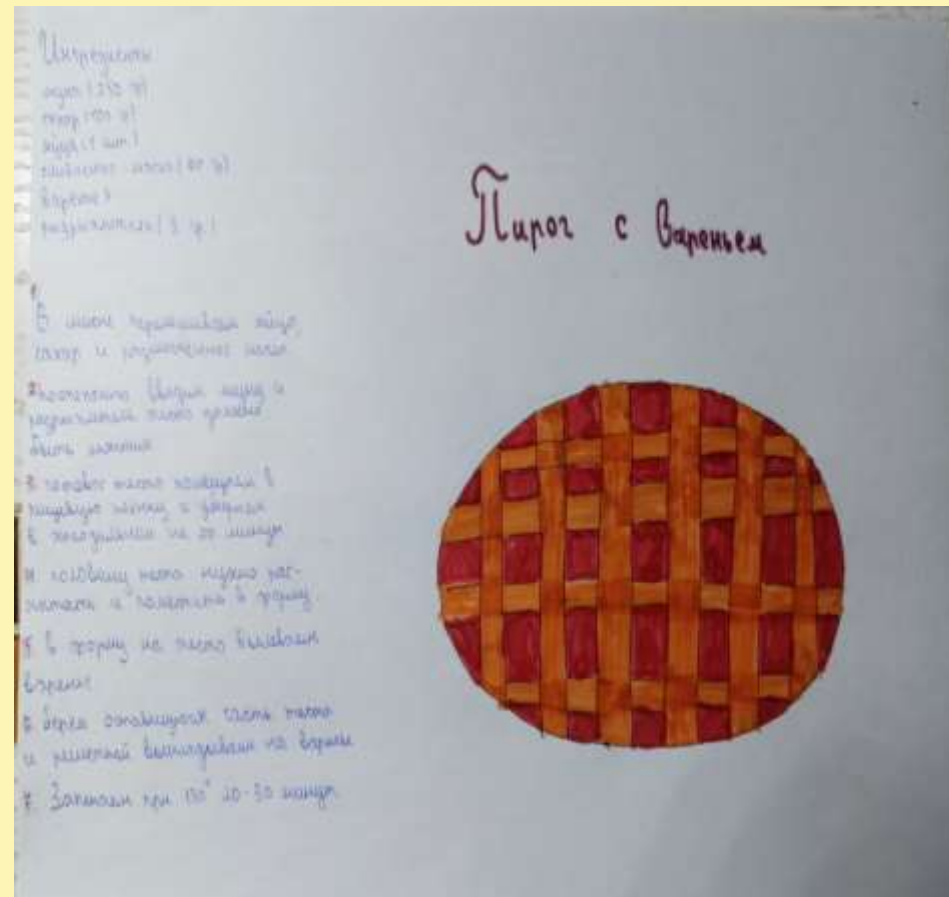 Ингредиенты
мука (250 г)
сахар (100 г)
яйцо (1 шт.)
сливочное масло (
варенье
разрыхлитель (
Пирог с Вареньем
1
В миске перемешиваем яйцо,
сахар и размягченное масло
2 постепенно вводим муку и
разрыхлитель тесто должно
быть
3. готовое тесто помещаем в
пищевую пленку и убираем
в холодильник на 20 минут
4. половину теста нужно рас-
катать и поместить в форму.
5 в форму на тесто выливаем
варенье
6 берем оставшуюся часть теста
и решеткой выкладываем на варенье
7. Запекаем при 20-30 минут